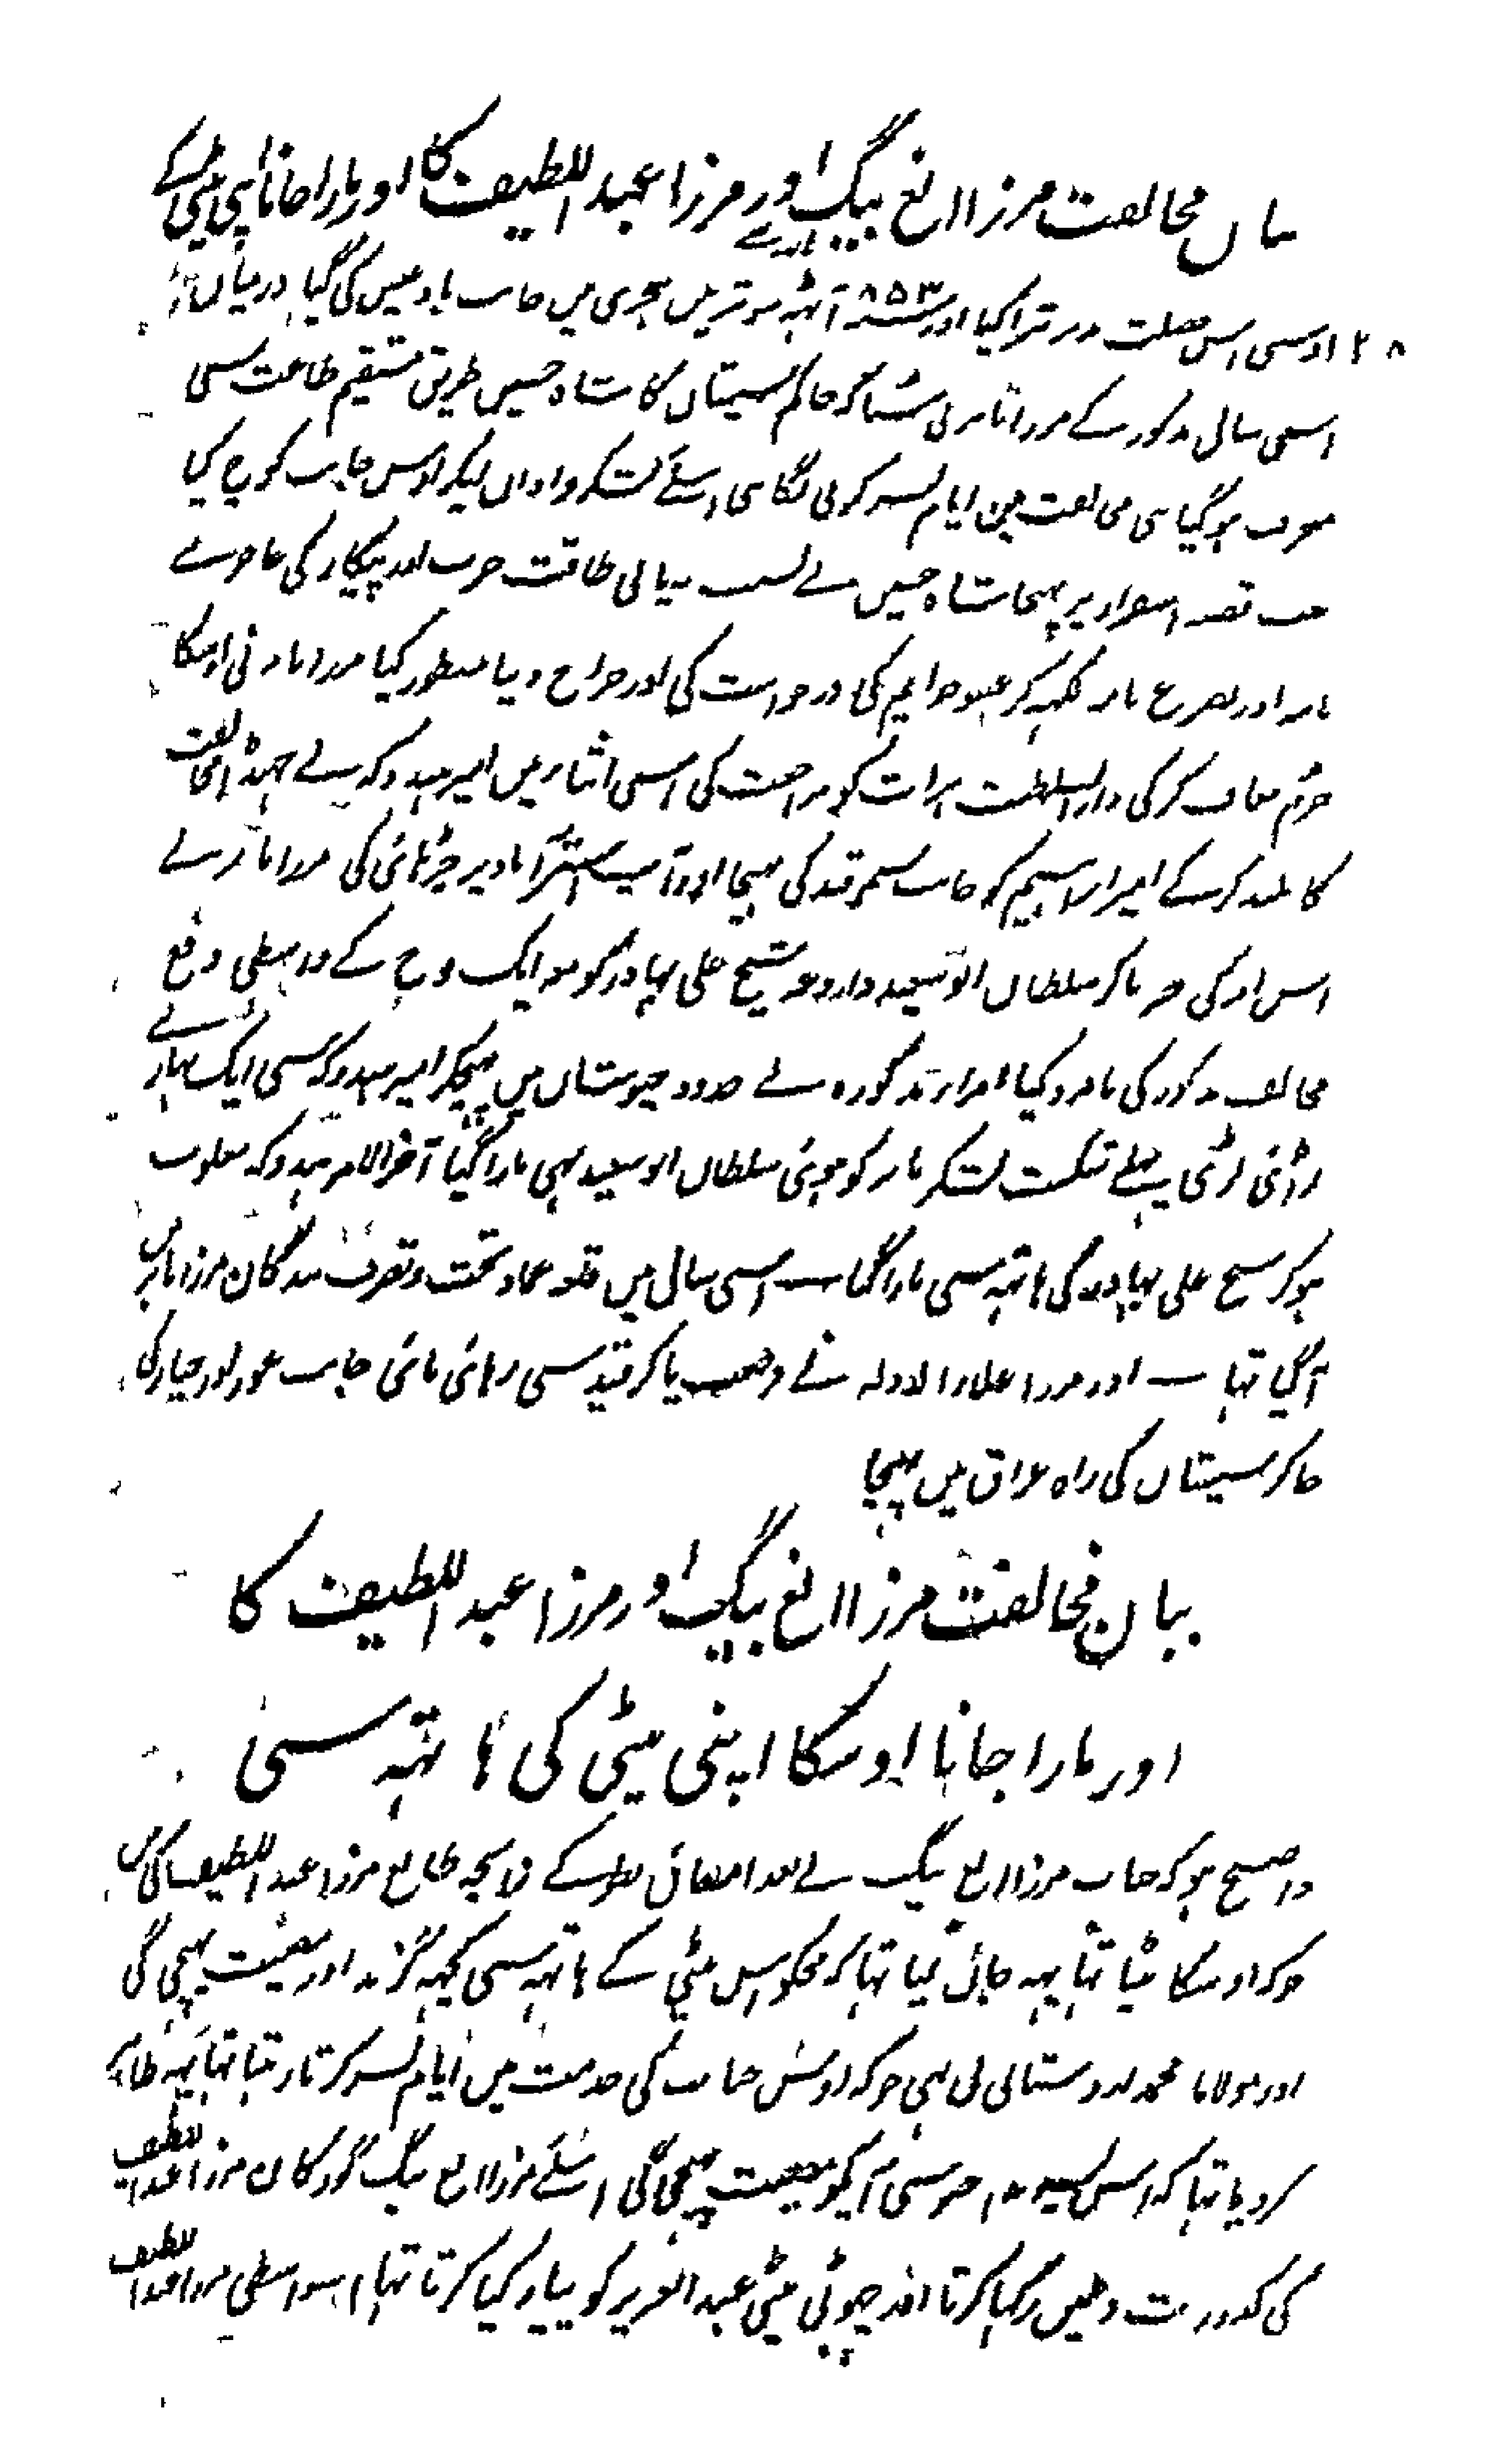 بیان مخالفت مرزا الغ بیگ اور مرزا عبد اللطیف کا اور مارا جانا اپنی بیٹی کے
ہاتہ سے
۲۸ اوسی اس اور ۸۵۳ آٹہہ سو ترپن ہجری میں جانب بادغیس کی گیا درمیان
اسی سال مذکور کے مرزا بابر نی سنا کہ حاکم سیستان کا شاہ حسین طریق مستقیم طاعت سی
منحرف ہوگیا ہی مخالفت مین ایام بسر کرنی لگا ہی اسلئے لشکر فراوان لیکر اوس جانب کوچ کیا
جب قصبہ پر پہنچا شاہ حسین نے بسبب طاقت حرب اور پیکار کی عاجزانہ
نامہ اور تضرع نامہ لکہہ کر عفو جرایم کی درخواست کی اور خراج دینا منظور کیا مرزا بابر نی اوسکا
جرم معاف کر کی دار السلطنت ہرات کو مراجعت کی اسی اثنا میں امیر ہندوکہ نے جہنڈا مخالفت
کا بلند کر کے امیر ابراہیم کو جانب سمرقند کی بہیجا اور آپ نے استرآباد پر چڑہائی کی مرزا بابر نے
اس امر کی خبر پاکر سلطان ابو سعید داروغہ شیخ علی بہادر کو مع ایک فوج کے واسطی دفع
مخالف مذکور کی نامزد کیا امرار مذکورہ نے حدود میں پہنچکر امیر ہندوکہ سی ایک بہاری
لڑائی لڑی پہلے شکست لشکر بابر کو ہوئی سلطان ابو سعید بہی مارا گیا آخر الامر ہندوکہ مغلوب
ہوکر شیخ علی بہادر کی ہاتہہ سی مارا گیا ــ اسی سال میں قلعہ عماد تحت و تصرف بندگان مرزا بابر میں
آگیا تہا ــ اور مرزا علاء الدولہ نے فرصت پاکر قید سی رہائی پائی جانب غور اور
جاکر سیستان کی راہ عراق میں پہنچا
بیان مخالفت مرزا الغ بیگ اور مرزا عبد اللطیف کا
اور مارا جانا اوسکا اپنی بیٹی کی ہاتہہ سی
واضح ہو کہ جناب مرزا الغ بیگ نے بعد امعان نظر کے زایچہ طالع مرزا عبد اللطیف کی میں
جو کہ اوسکا بیٹا تہا یہہ جان لیا تہا کہ مجکو اس بیٹی کے ہاتہہ سی کچہہ گزند اور مصیبت پہنچی گی
اور مولانا محمد اردستانی نی بہی جو کہ اوس جناب کی خدمت میں ایام بسر کرتا رہتا تہا یہہ ظاہر
کردیا تہا کہ اس سی آپکو مصیبت پہنچی گی اسلئے مرزا الغ بیگ گورکان مرزا عبد اللطیف
کی کدورت دلمیں رکہا کرتا اور چہوٹی بیٹی عبد العزیز کو پیار کیا کرتا تہا اسواسطی مرزا عبد اللطیف